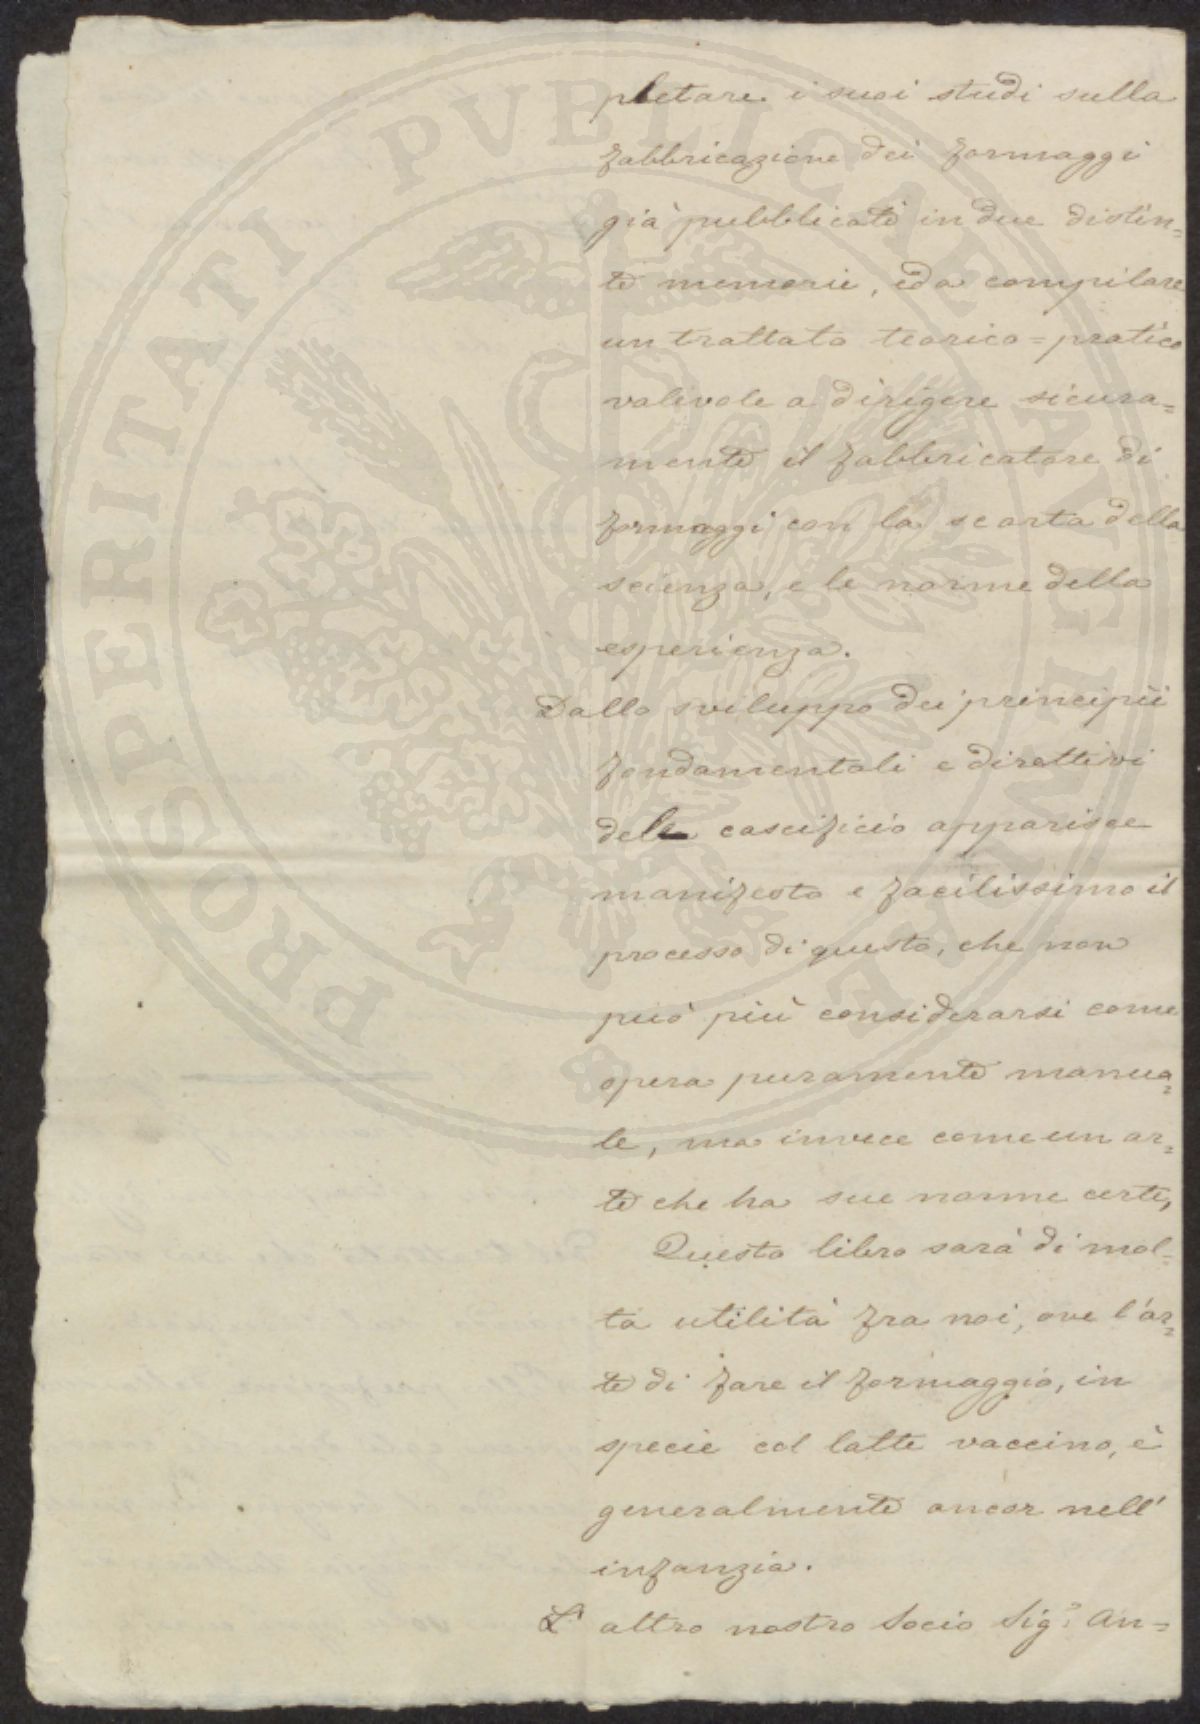 pletare i suoi studi sulla
fabbricazione dei formaggi
già pubblicati in due distin=
te memorie, ed a compilare
un trattato teorico=pratico
valevole a dirigere sicura=
mente il fabbricatore di
formaggi con la scorta della
scienza, e le norme della
esperienza.
Dallo sviluppo dei principii
fondamentali e direttivi
del caseificio apparisce
manifesto e facilissimo il
processo di questo, che non
può più considerarsi come
opera puramente manua=
le, ma invece come un ar=
te che ha sue norme certe,
Questo libro sarà di mol=
ta utilità fra noi, ove l'ar=
te di fare il formaggio, in
specie col latte vaccino, è
generalmente ancor nell'
infanzia.
L' altro nostro Socio Sig.r An=
PROSPERITATI PVBLICAE AVGENDAE